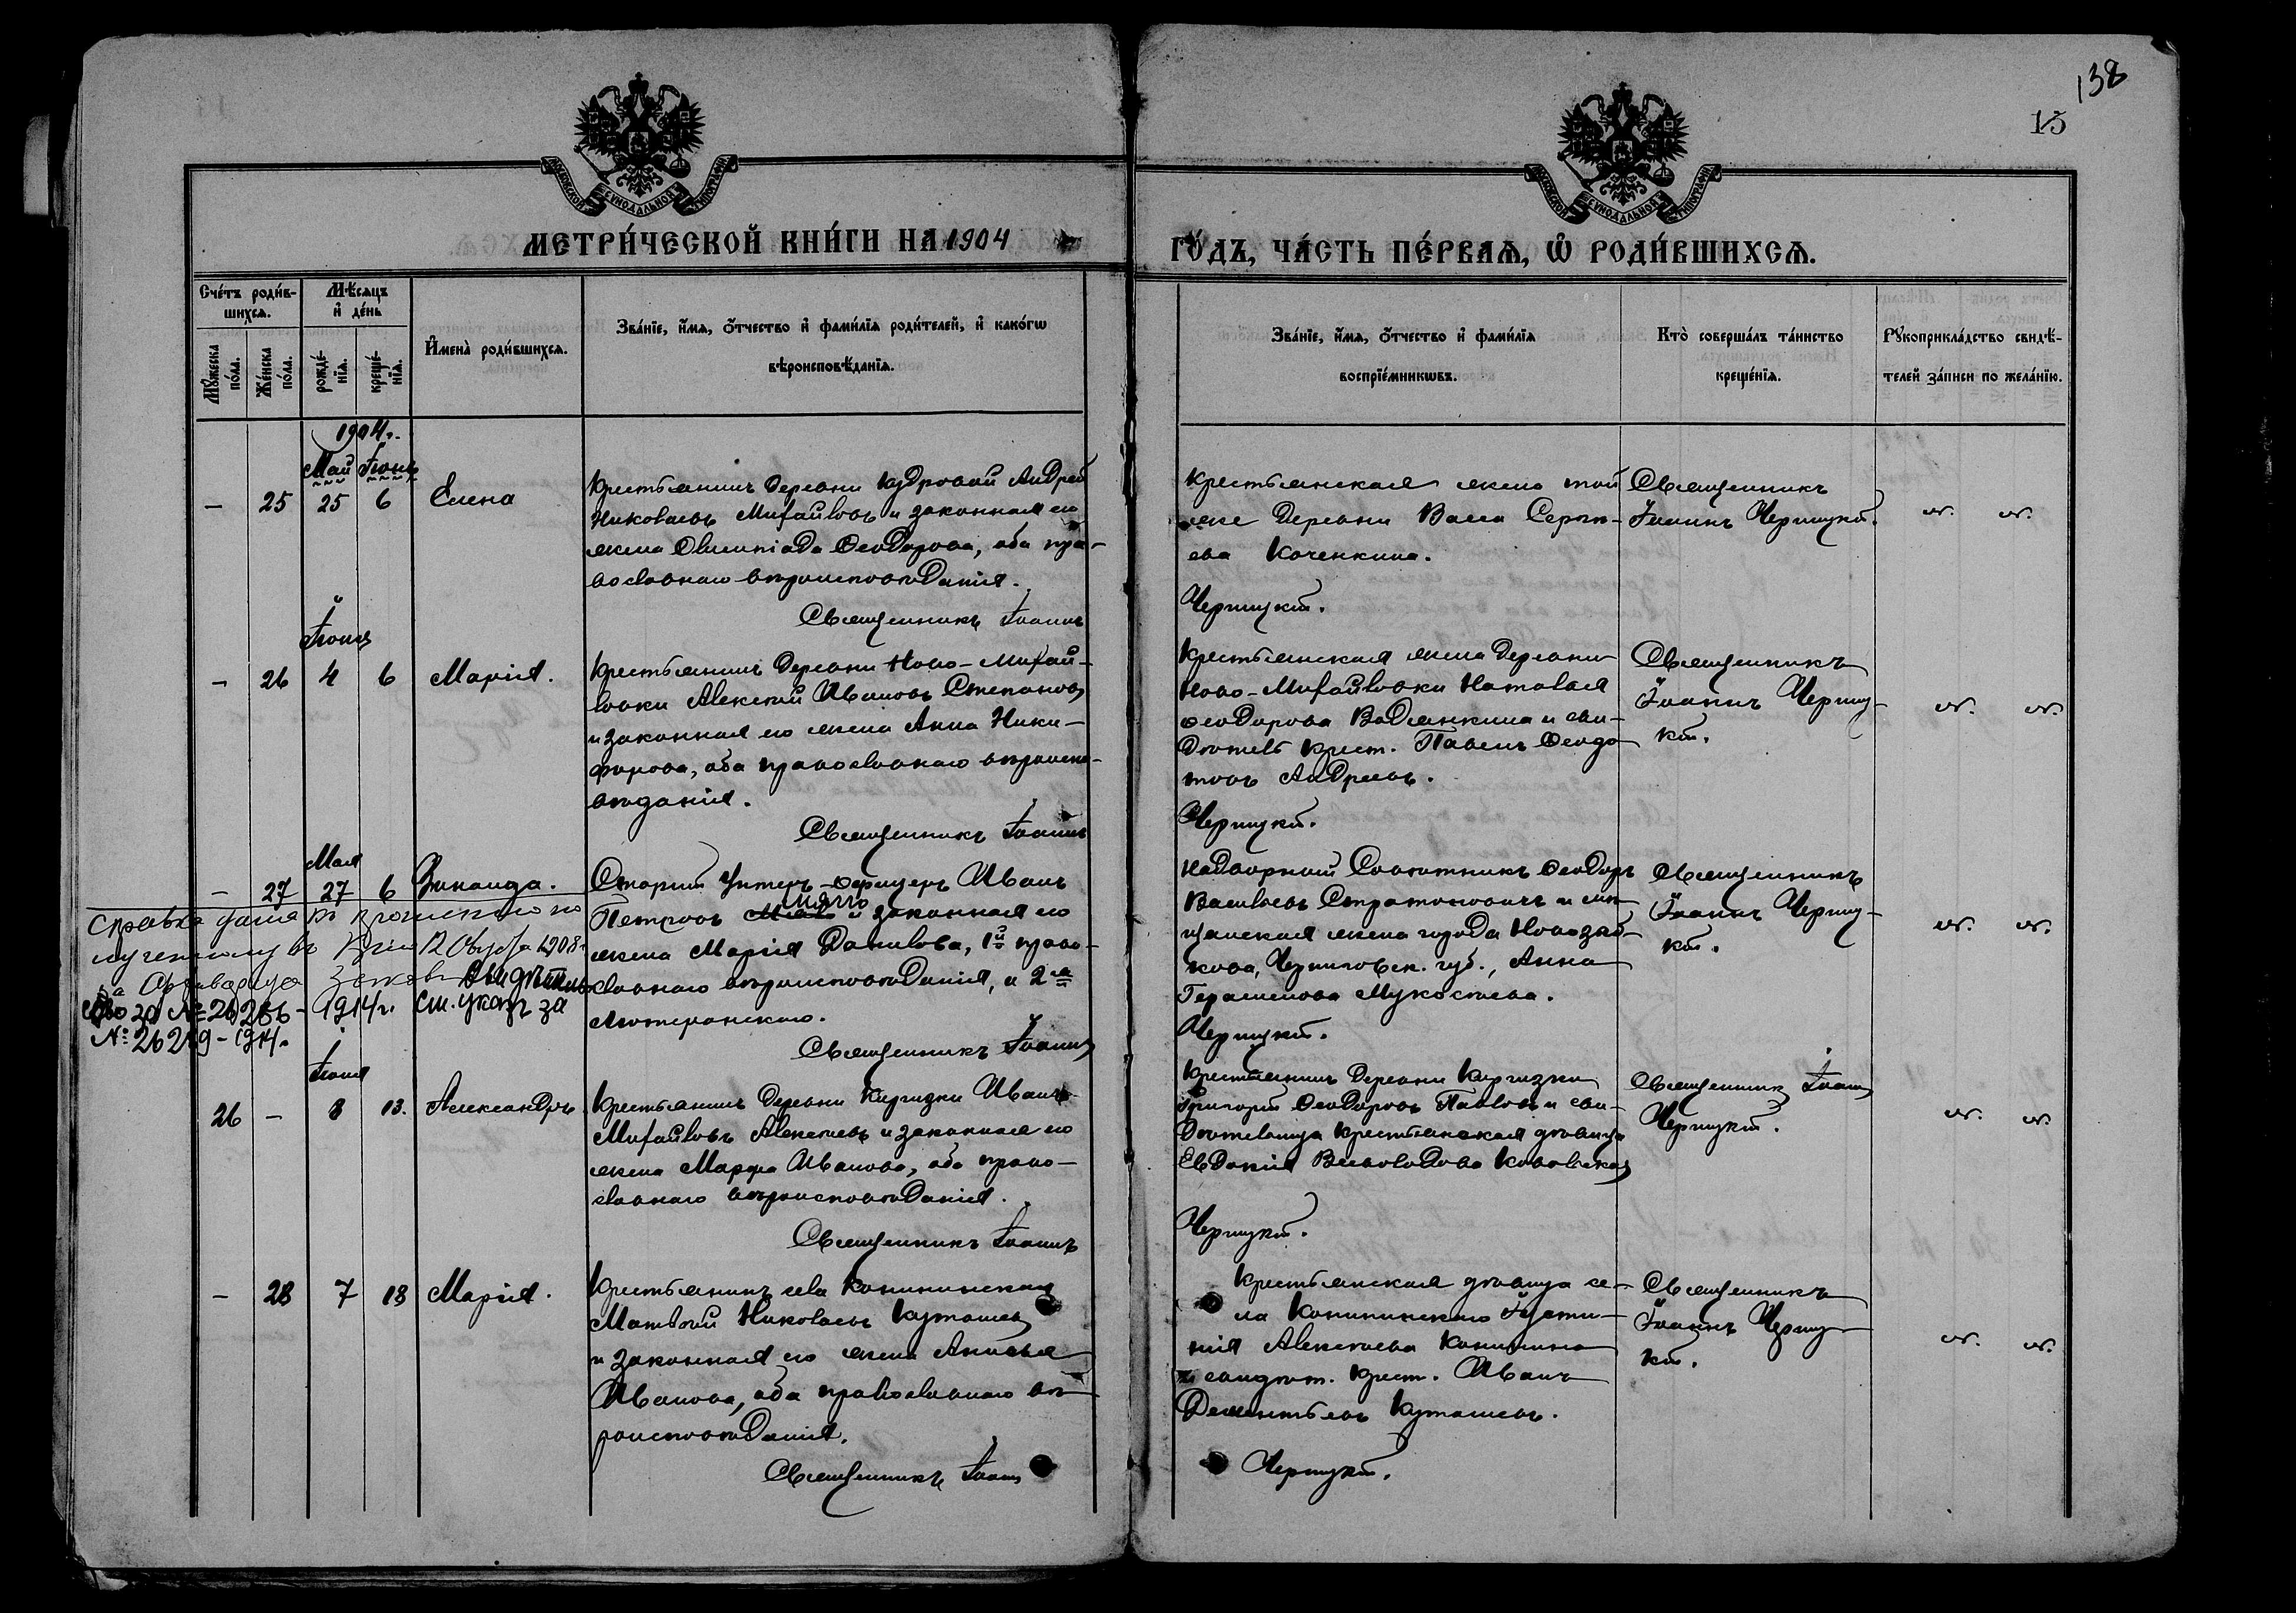 138
15
МЕТРИ́ЧЕСКОЙ КНИ́ГИ НА 1904
ГО́ДЪ, ЧА́СТЬ ПЕ́РВАѦ, Ѿ РОДИ́ВШИХСѦ.
Сче́тъ роди́в-
шихсѧ.
Мѣ́сѧцъ
и҆ де́нь
Мꙋ́жеска
по́ла.
Же́нска
по́ла.
рожде́-
нїѧ.
креще́-
нїѧ.
И҆мена̀ роди́вшихсѧ.
Зва́нїе, и҆́мѧ, ѻ҆́тчество и҆ фами́лїѧ роди́телей, и҆ како́гѡ
вѣроисповѣ́данїѧ.
Зва́нїе, и҆́мѧ, ѻ҆́тчество и҆ фами́лїѧ
воспрїе́мникѡвъ.
Кто̀ соверша́лъ та́инство
креще́нїѧ.
Рꙋкоприкла́дство свидѣ́-
телей за́писи по жела́нїю.
1904 г.
Май Іюнь
— 25 25 6 Елена
Крестьянинъ деревни Кудровой Андрей
Николаевъ Михайловъ и законная его
жена Олимпіада Ѳеодорова, оба пра-
вославнаго вѣроисповѣданія.
Священникъ Іоаннъ
Крестьянская жена той
же деревни Васса Сергѣ-
ева Коченкина.
Черницкій.
Священникъ
Іоаннъ Черницкій.
Іюнь
— 26 4 6 Марія.
Крестьянинъ деревни Ново-Михай-
ловки Алексѣй Ивановъ Степановъ
и законная его жена Анна Ники-
форова, оба православнаго вѣроиспо-
вѣданія.
Священникъ Іоаннъ
Крестьянская жена деревни
Ново-Михайловки Наталья
Ѳеодорова Водянкина и сви-
дѣтель крест. Павелъ Ѳеодо-
товъ Андреевъ.
Черницкій.
Священникъ
Іоаннъ Черниц-
кій.
Мая
— 27 27 6 Зинаида.
Старшій Унтеръ-офицеръ Иванъ
Петровъ и законная его
жена Марія Данилова, 1й право-
славнаго вѣроисповѣданія, и 2ая
лютеранскаго.
Священникъ Іоаннъ
Надворный Совѣтникъ Ѳеодоръ
Васильевъ Стратоновичъ и мѣ-
щанская жена города Новозыб-
кова, Черниговск. губ., Анна
Герасимова Мукосѣева.
Черницкій.
Священникъ
Іоаннъ Черниц-
кій.
Справка дана
12 1908 г.
свидѣтель-
ство за № 26286 - 1914 г. см. указъ за
№ 26289 - 1914.
Іюня
26 — 8 13. Александръ.
Крестьянинъ деревни Киргизки Иванъ
Михайловъ Алексѣевъ и законная его
жена Марѳа Иванова, оба право-
славнаго вѣроисповѣданія.
Священникъ Іоаннъ
Крестьянинъ деревни Киргизки
Григорій Ѳеодоровъ Павловъ и сви-
дѣтельница крестьянская дѣвица
Евдокія Всеволодова Ковальская
Черницкій.
Священникъ Іоаннъ
Черницкій.
— 28 7 13 Марія.
Крестьянинъ села Конининскаго
Матвѣй Николаевъ Куташевъ
и законная его жена Анисья
Иванова, оба православнаго вѣ-
роисповѣданія.
Священникъ Іоаннъ
Крестьянская дѣвица се-
ла Конининскаго Іусти-
нія Алексѣева Конинина
и свидѣт. крест. Иванъ
Дементьевъ Куташевъ.
Черницкій.
Священникъ
Іоаннъ Черниц-
кій.